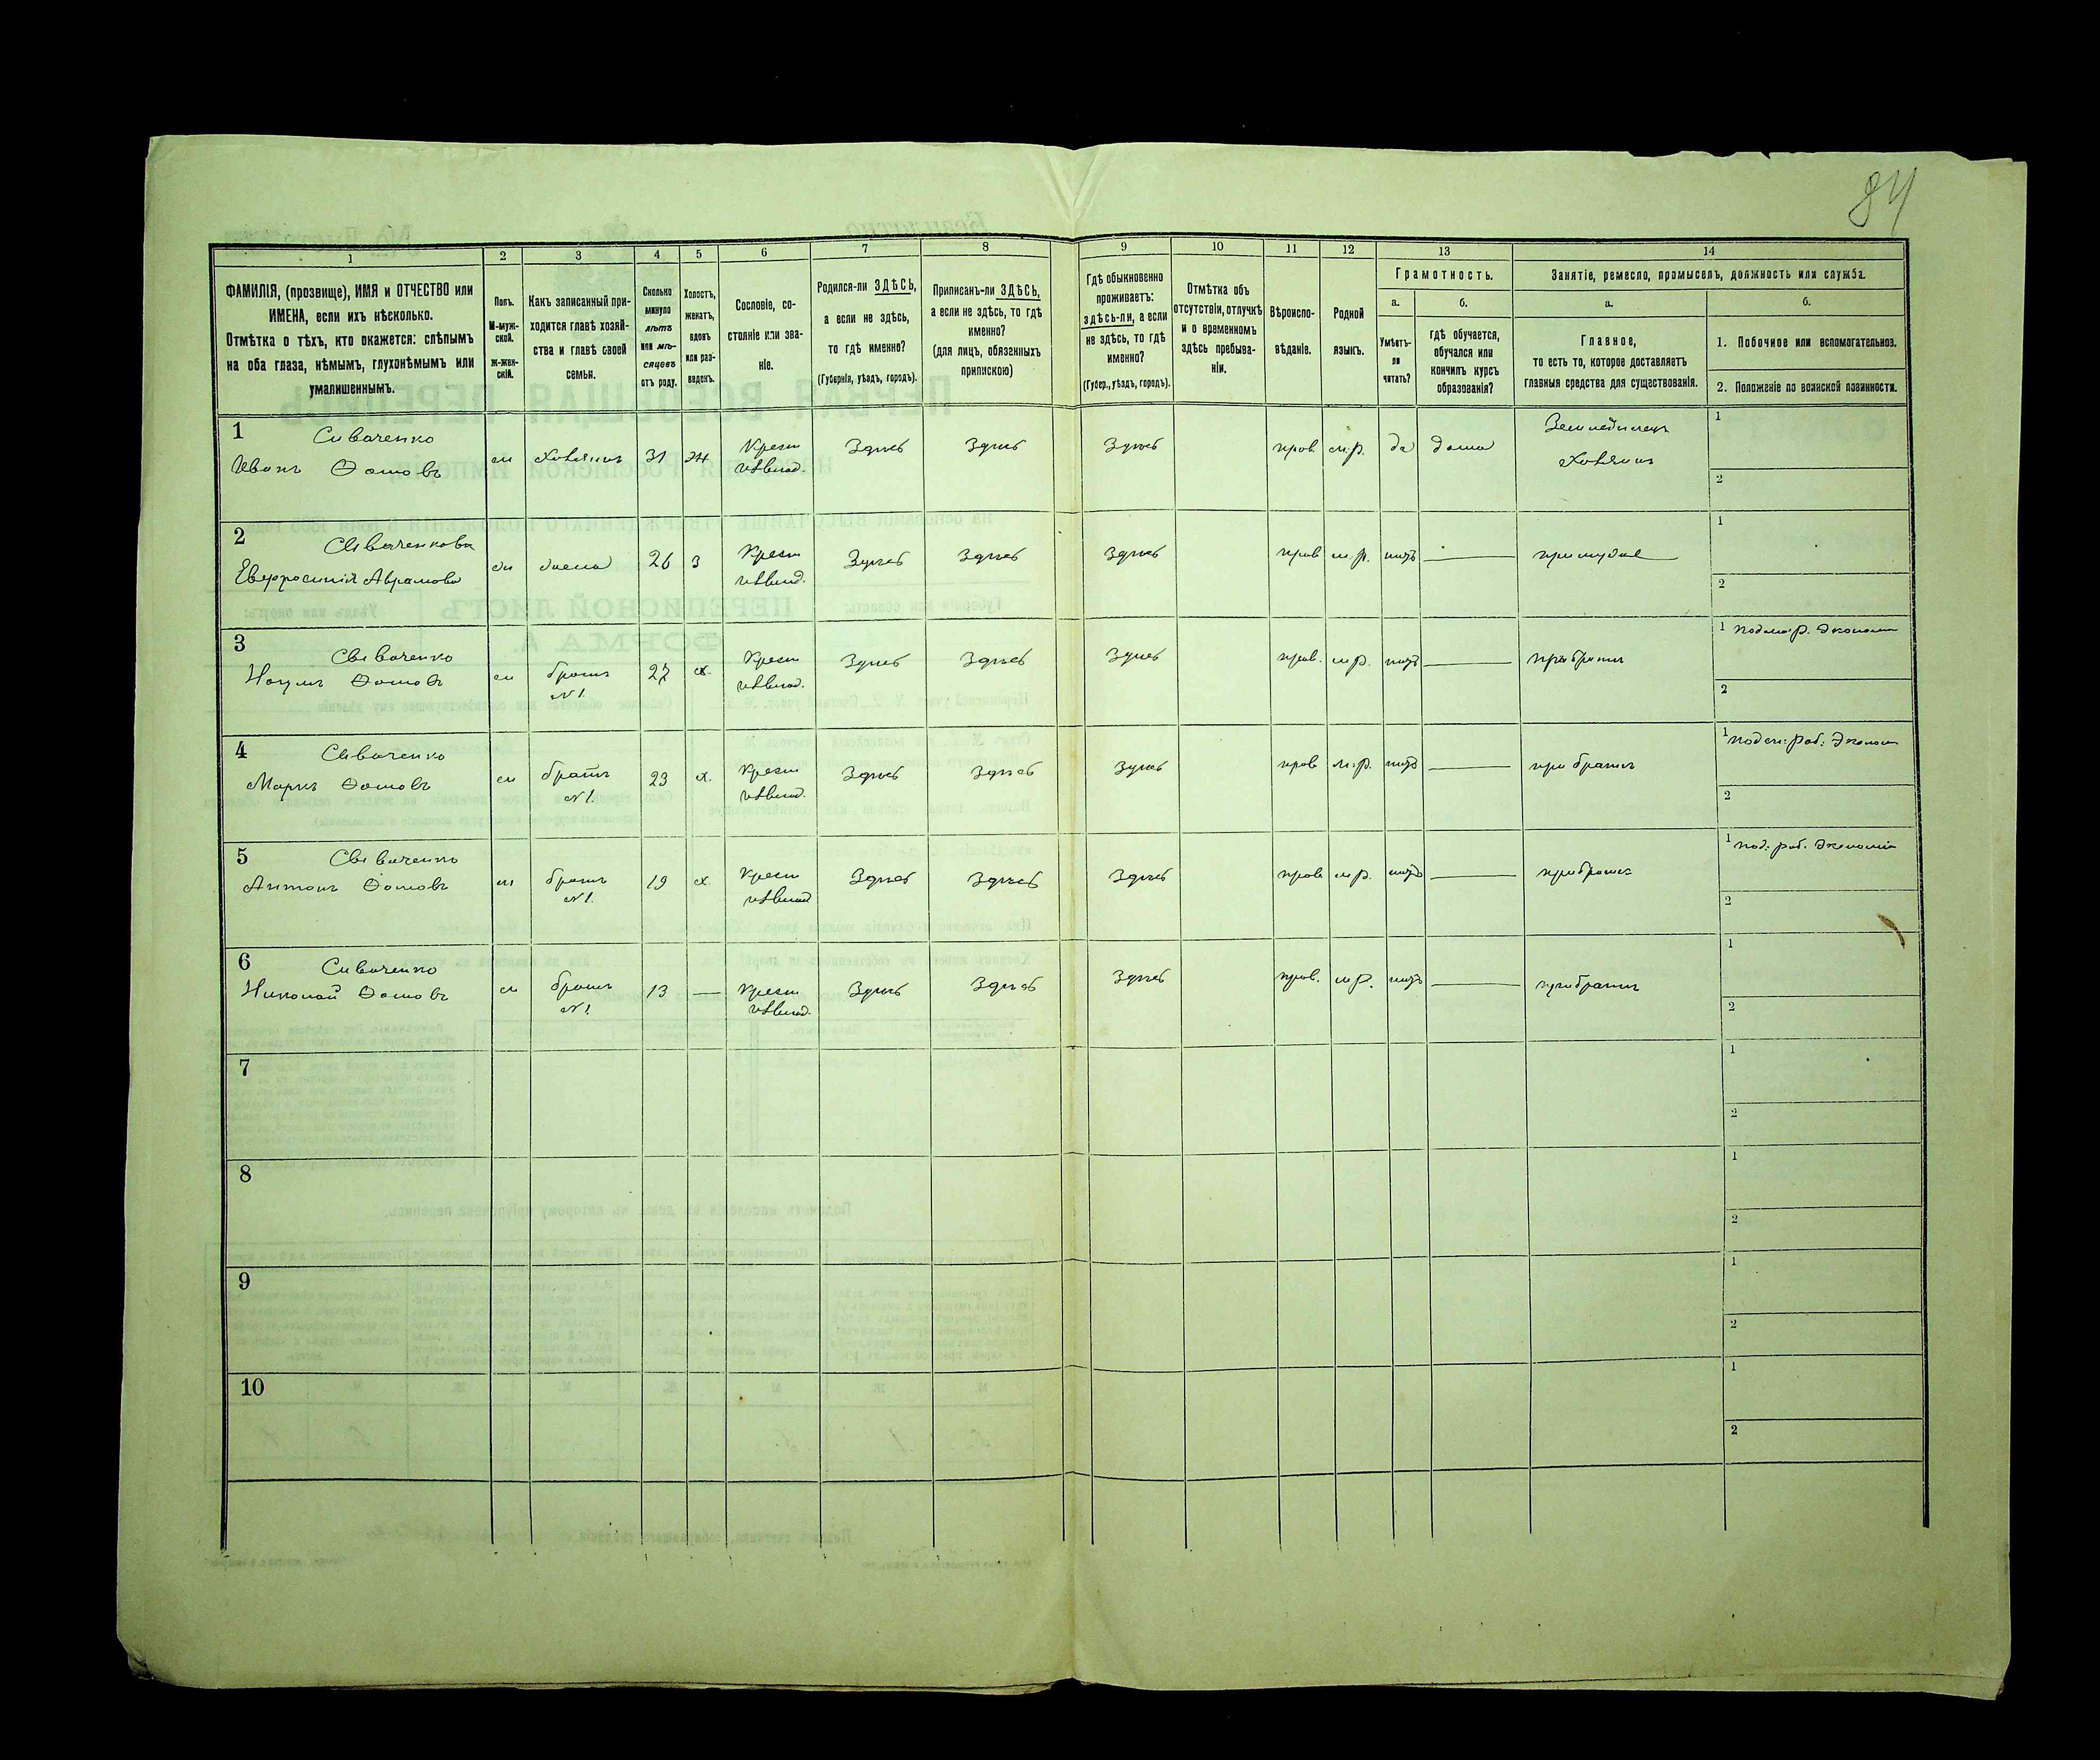 84
1
2
3
4
5
6
7
8
9
10
11
12
13
14
ФАМИЛІЯ, (прозвище), ИМЯ и ОТЧЕСТВО или
ИМЕНА, если ихъ нѣсколько.
Отмѣтка о тѣхъ, кто окажется: слѣпымъ
на оба глаза, нѣмымъ, глухонѣмымъ или
умалишеннымъ.
Полъ.
М-муж-
ской.
ж-жен-
скій.
Какъ записанный при-
ходится главѣ хозяй-
ства и главѣ своей
семьи.
Сколько
минуло
лѣтъ
или мѣ-
сяцевъ
отъ роду.
Холостъ,
женатъ,
вдовъ
или раз-
веденъ.
Сословіе, со-
стояніе или зва-
ніе.
Родился-ли ЗДѢСЬ,
а если не здѣсь,
то гдѣ именно?
(Губернія, уѣздъ, городъ).
Приписанъ-ли ЗДѢСЬ,
а если не здѣсь, то гдѣ
именно?
(для лицъ, обязанныхъ
припискою)
Гдѣ обыкновенно
проживаетъ:
здѣсь-ли, а если
не здѣсь, то гдѣ
именно?
(Губер., уѣздъ, городъ).
Отмѣтка объ
отсутствіи, отлучкѣ
и о временномъ
здѣсь пребыва-
ніи.
Вѣроиспо-
вѣданіе.
Родной
языкъ.
Грамотность.
а.
Умѣетъ-
ли
читать?
б.
гдѣ обучается,
обучался или
кончилъ курсъ
образованія?
Занятіе, ремесло, промыселъ, должность или служба.
а.
Главное,
то есть то, которое доставляетъ
главныя средства для существованія.
б.
1. Побочное или вспомогательное.
2. Положеніе по воинской повинности.
1
Сиваченко
Иванъ Ѳомовъ
м
Хозяинъ
31
ж
Крест
Здѣсь
Здѣсь
Здѣсь
прав.
м.р.
да
дома
Земледѣлецъ
Хозяинъ
1
2
2
Сиваченкова
Евфросинія Аврамова
жена
26
З
Крест
Здѣсь
Здѣсь
Здѣсь
прав
м.р.
нѣтъ
при мужѣ
1
2
3
Сиваченко
Наумъ Ѳомовъ
м
братъ
№ 1.
27
х.
Крест
Здѣсь
Здѣсь
Здѣсь
прав.
м.р.
нѣтъ
при братѣ
1
2
4
Сиваченко
Маркъ Ѳомовъ
м
братъ
№ 1.
23
х.
Крест
Здѣсь
Здѣсь
Здѣсь
прав
м.р.
нѣтъ
при братѣ
1
2
5
Сиваченко
Антонъ Ѳомовъ
м
братъ
№ 1.
19
х.
Крест
Здѣсь
Здѣсь
Здѣсь
прав
м.р.
нѣтъ
при братѣ
1
2
6
Сиваченко
Николай Ѳомовъ
м
братъ
№ 1.
13
Крест
Здѣсь
Здѣсь
Здѣсь
прав.
м.р.
нѣтъ
при братѣ
1
2
7
1
2
8
1
2
9
1
2
10
1
2